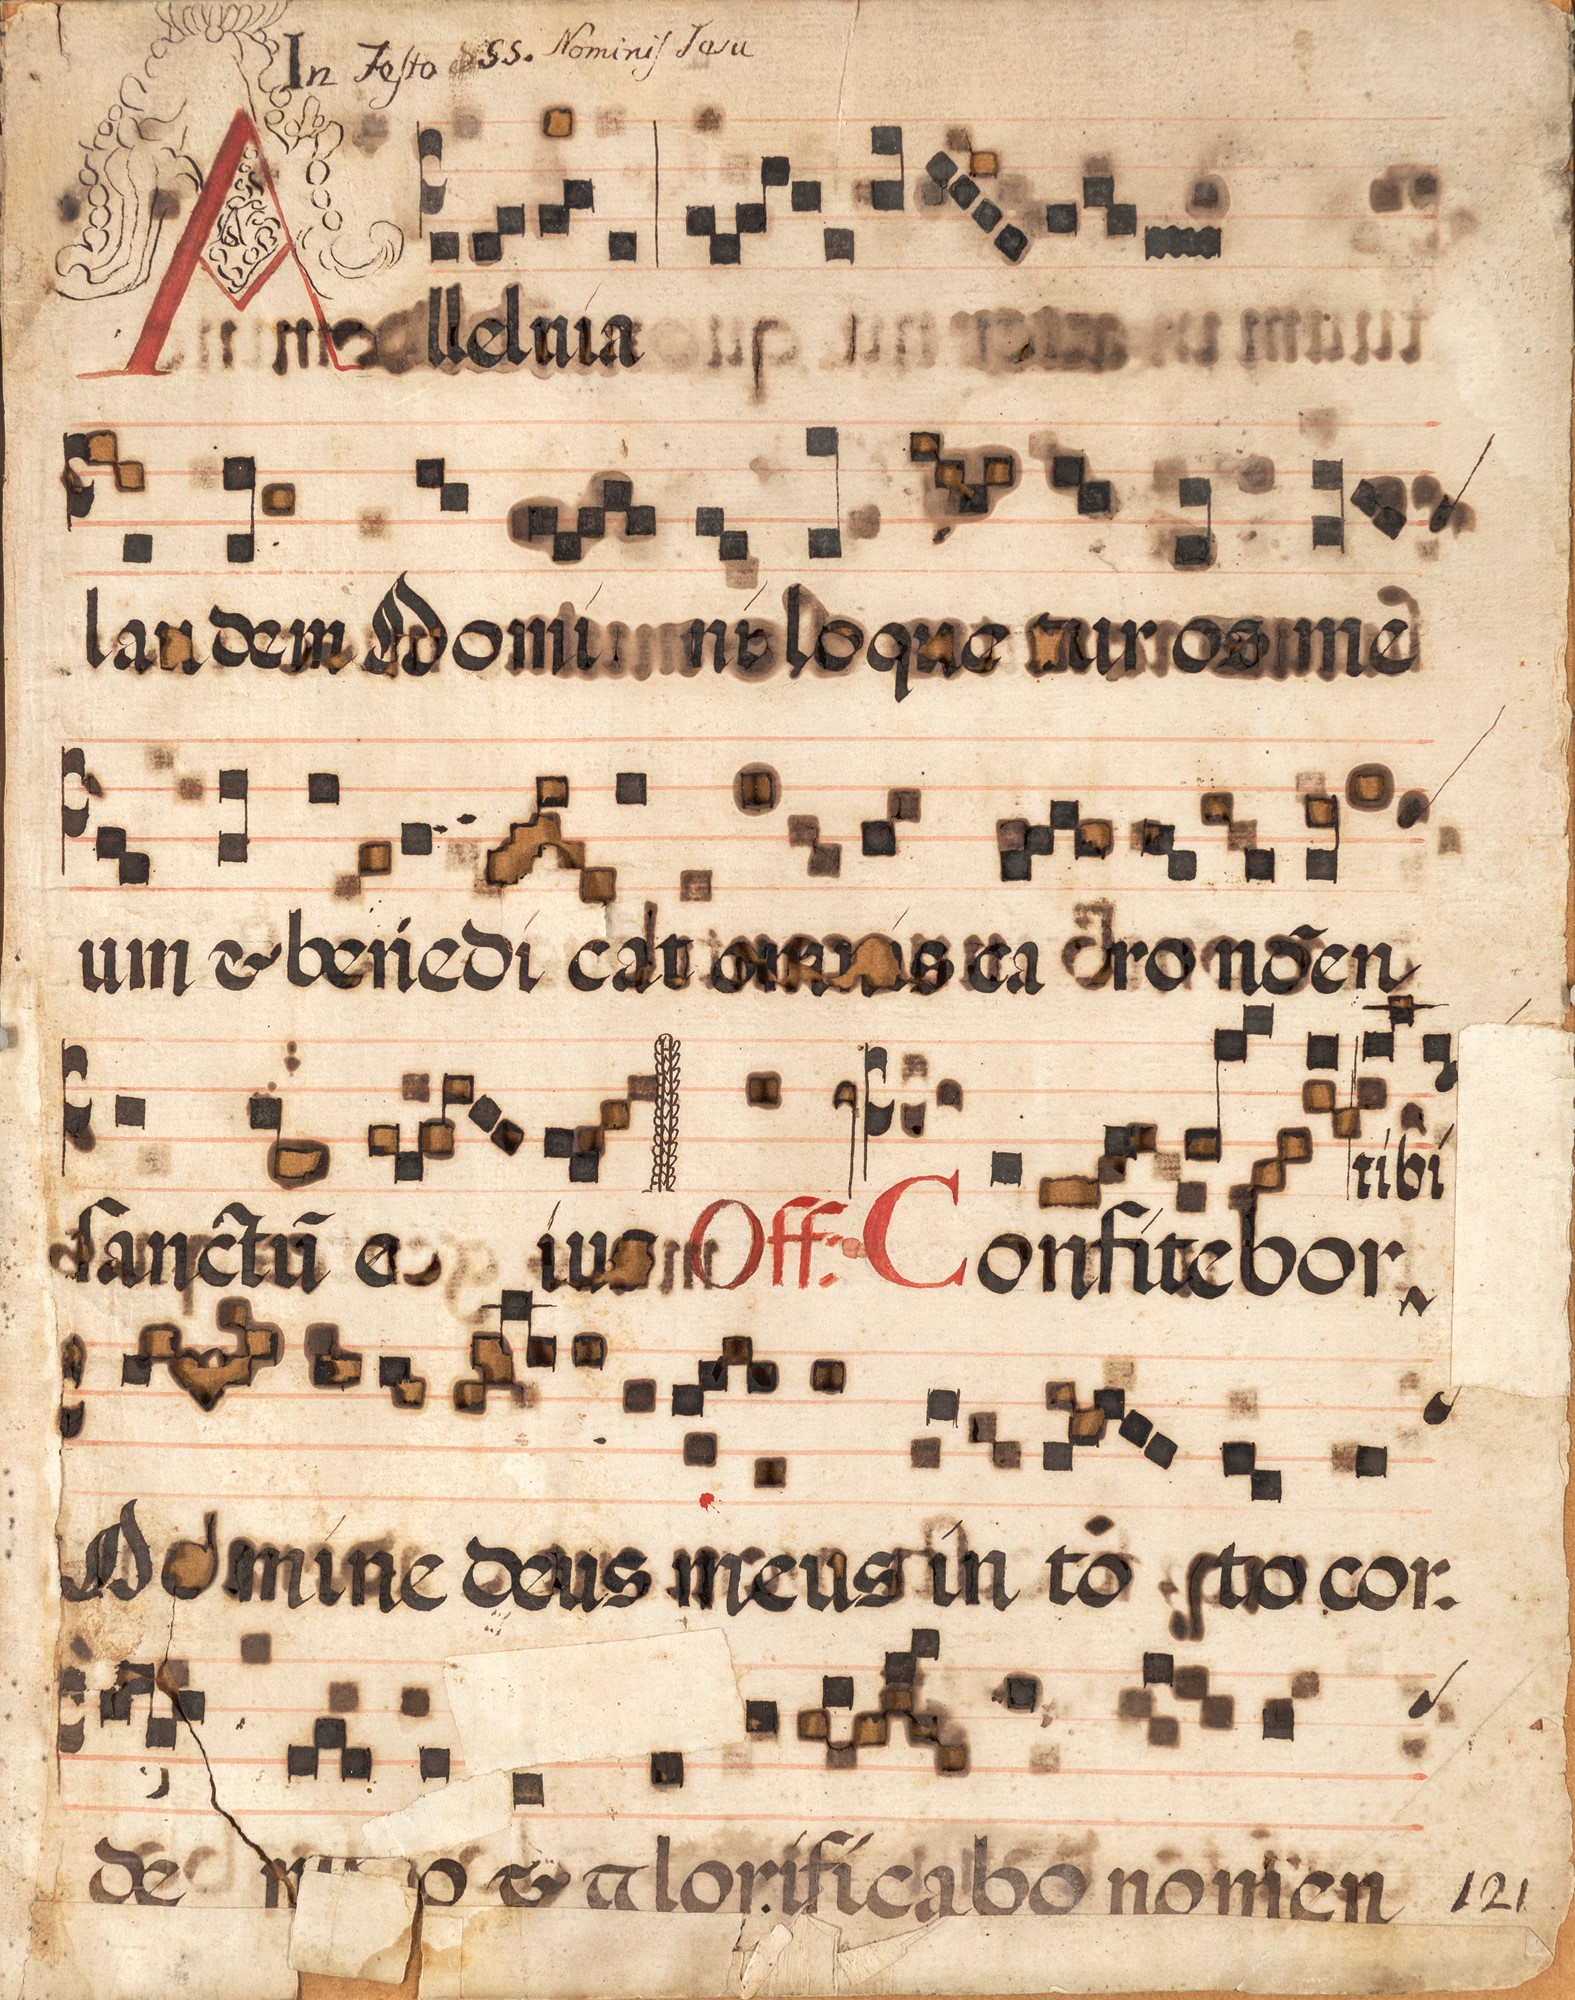 In Festo SS. Nominis Jesu
Alleluia
laudem Domini loquetur os me
um & benedicat omnis ca ro nōen
sanctū e ius Off: Confitebor tibi
Domine deus meus in tō to cor:
de m o & glorificabo nomen 121